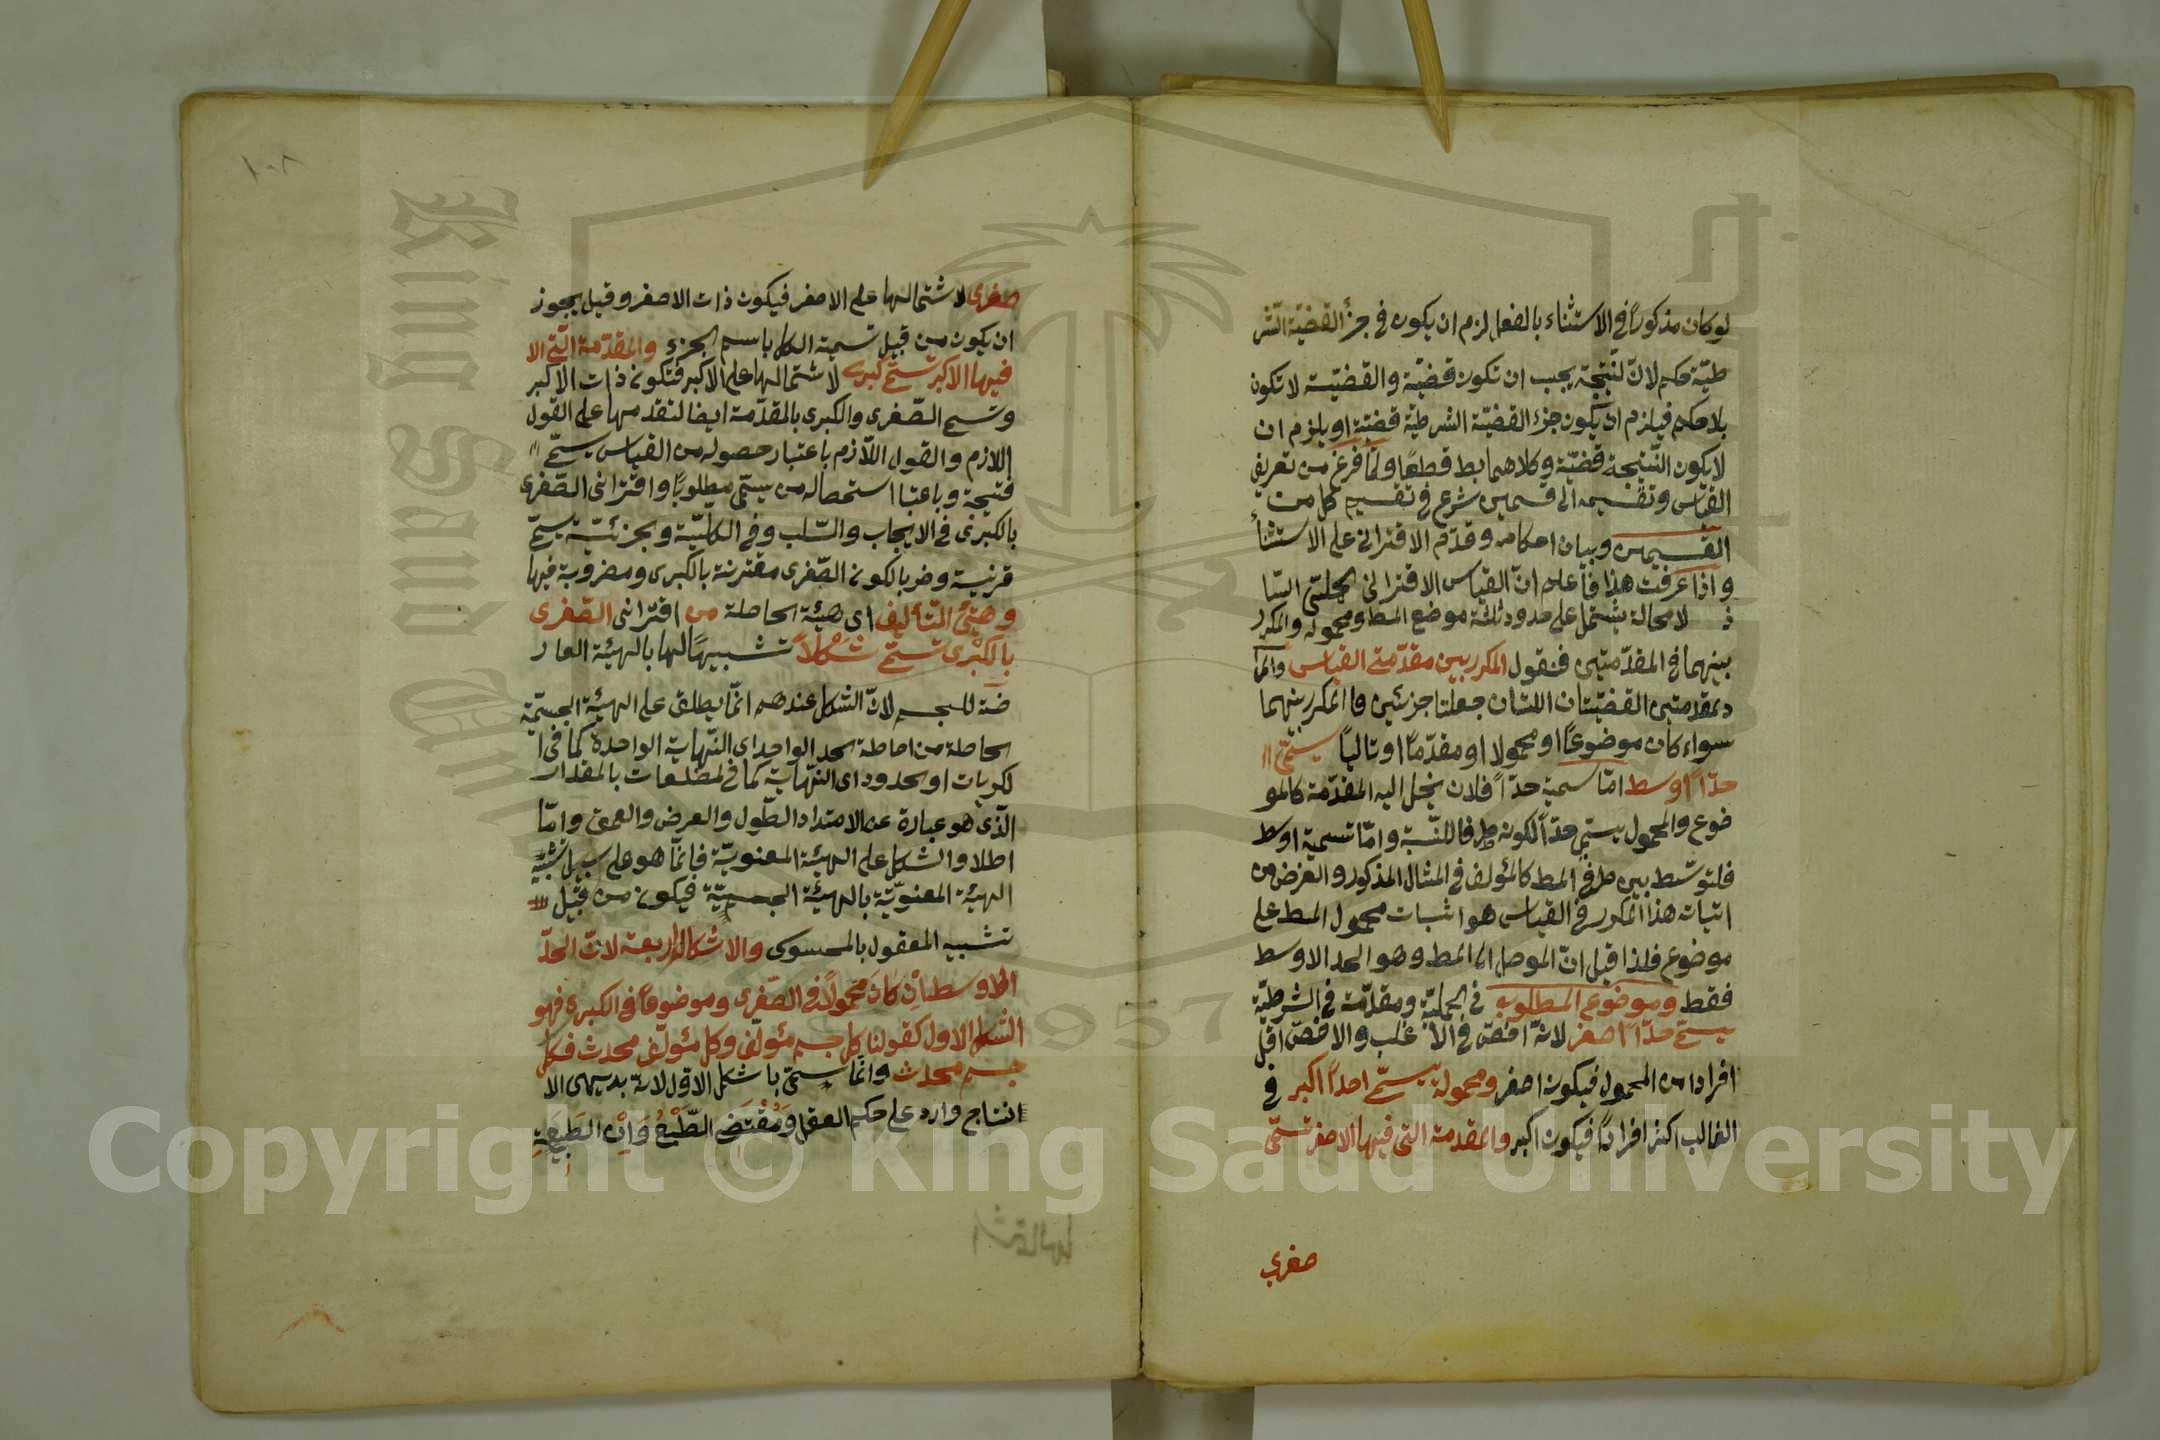 لو كان مذكورًا في الاستثناء بالفعل لزم ان يكون في جزأ القضيّة الشر
طيّة حكم لانّ لنّتيجة يجب ان تكون قضيّة والقضيّة لا تكون
بلا حكم فيلزم ان يكون جزء القضيّة الشرطيّة قضيّة او يلزم ان
لا يكون النّتيجة قضيّة وكلاهما بط قطعًا ولمّا فرغ من تعريف
القيّاس وتقسيمه الى قسمين شرع في تقسيم كل من
القسمين وبيان احكامه وقدّم الاقتراني على الاستثنأ
واذا عرفت هذا فاعلم انّ القياس الاقتراني الحملتى السّا
ذ لا محالة يشتمل على حدود ثلثة موضع المط ومحموله والمكرر
بينهما في المقدّمتين فنقول المكرر بين مقدّمتى القياس والمرا
د بمقدمتين القضيّتان اللتان جعلتا جزئين فا المكرر بينهما
سواء كان موضوعًا او محمولا او مقدّمًا او تاليًا يسمّى
حدّاً اوسط امّا سمية حدّاً فلان ينحل اليه المقدّمة كالمو
ضوع والمحمول يسمّى حدّاً لكونه طرفا للنّسبة وامّا تسمية اوسط
فلتوسّط بين طرفى المط كالمؤلف في المثال المذكور والغرض من
اتيات هذا المكرر في القياس هو اثبات محمول المط على
موضوع فلذا قيل انّ الموصل الى المط وهو الحد الاوسط
فقط وموضوع المطلوب في الحمليّة ومقدّمة في الشرطيّة
يسمّى حدّاً اصغر لانّه اخصّ في الاغلب والاخصّ اقلّ
افرادا من المحمول فيكون اصغر ومحموله يسمّى احداً اكبر في
الغالب اكثر افرادًا فيكون اكبر والمقدمة التى فيها الاصغر تسمّى
صغرى
١٠٨
صغرى لاشتمالها على الاصغر فيكون ذات الاصغر وقيل يجوز
ان يكون من قبيل تسمية الكل باسم الجزء والمقدّمة الّتى الا
فيها الاكبر تسمّى كبرى لاشتمالها على الاكبر فتكون ذات الاكبر
وتسمى الصّغرى والكبرى بالمقدّمة ايضا لتقدمها على القول
اللازم والقول اللّازم باعتبار حصوله من القياس يسمّى
نتيجة وباعتبا استحصاله من يسمّى مطلوبًا واقترانى الصّغرى
بالكبرى في الايجاب والسّلب وفى الكليّة وجزئيّة يسمّى
قرنية وضربا لكون الصّغرى مقترنة بالكبرى ومضروبة فيها
وهيئة التّأليف اى هيئة الحاصلة من اقترانى الصّغرى
بالكبرى تسمّى شَكْلاً تشبيهًا لها بالهيئة العار
ضة للجسم لانّ الشكل عندهم انّما يطلق على الهيئة الجسميّة
الحاصلة من احاطة الحد الواحد اى النّهاية الواحدة كما فى ا
لكريات او الحدود اى النّهاية كما في لمضلعات بالمقدار
الّذى هو عبارة عن الامتداد الطّول والعرض والعمق وامّا
اطلا والشكل على الهيئة المعنويّة فانّما هو على سبيل تشبيه
الهيئة المعنويّة بالهيئة الجسميّة فيكون من قبيل
تشبيه المعقول بالمحسوس والاشكال اربعة لانّ الحدّ
الاوسط ان كان محمولًا في الصّغرى وموضوعًا في الكبرى فهو
الشكل الاول كقولنا كل جسم مؤلّف وكل مؤلّف محدث فكل
جسم محدث وانّما يسمّى با شكل الاوّل لانه بديهى الا
انتاج وارد على حكم العقل وَمُقْتَضَى الطّبْعُ وَاِنْ الطَّبِيْعَةِ